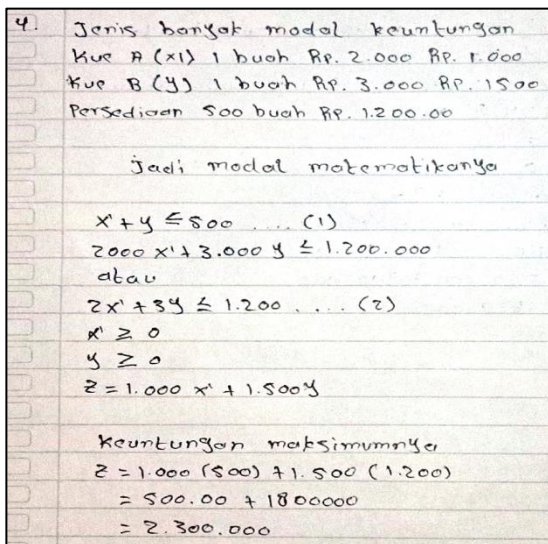 4. Jenis banyak modal keuntungan
Kue A (x1) 1 buah Rp. 2.000 Rp. 1.000
Kue B (y) 1 buah Rp. 3.000 Rp. 1500
Persediaan 500 buah Rp. 1.200.00
Jadi modal matematikanya
x' + y ≤ 500 .... (1)
2000 x' + 3.000 y ≤ 1.200.000
atau
2x' + 3y ≤ 1.200 .... (2)
x' ≥ 0
y ≥ 0
z = 1.000 x' + 1.500y
Keuntungan maksimumnya
z = 1.000 (500) + 1.500 (1.200)
= 500.00 + 1800000
= 2.300.000